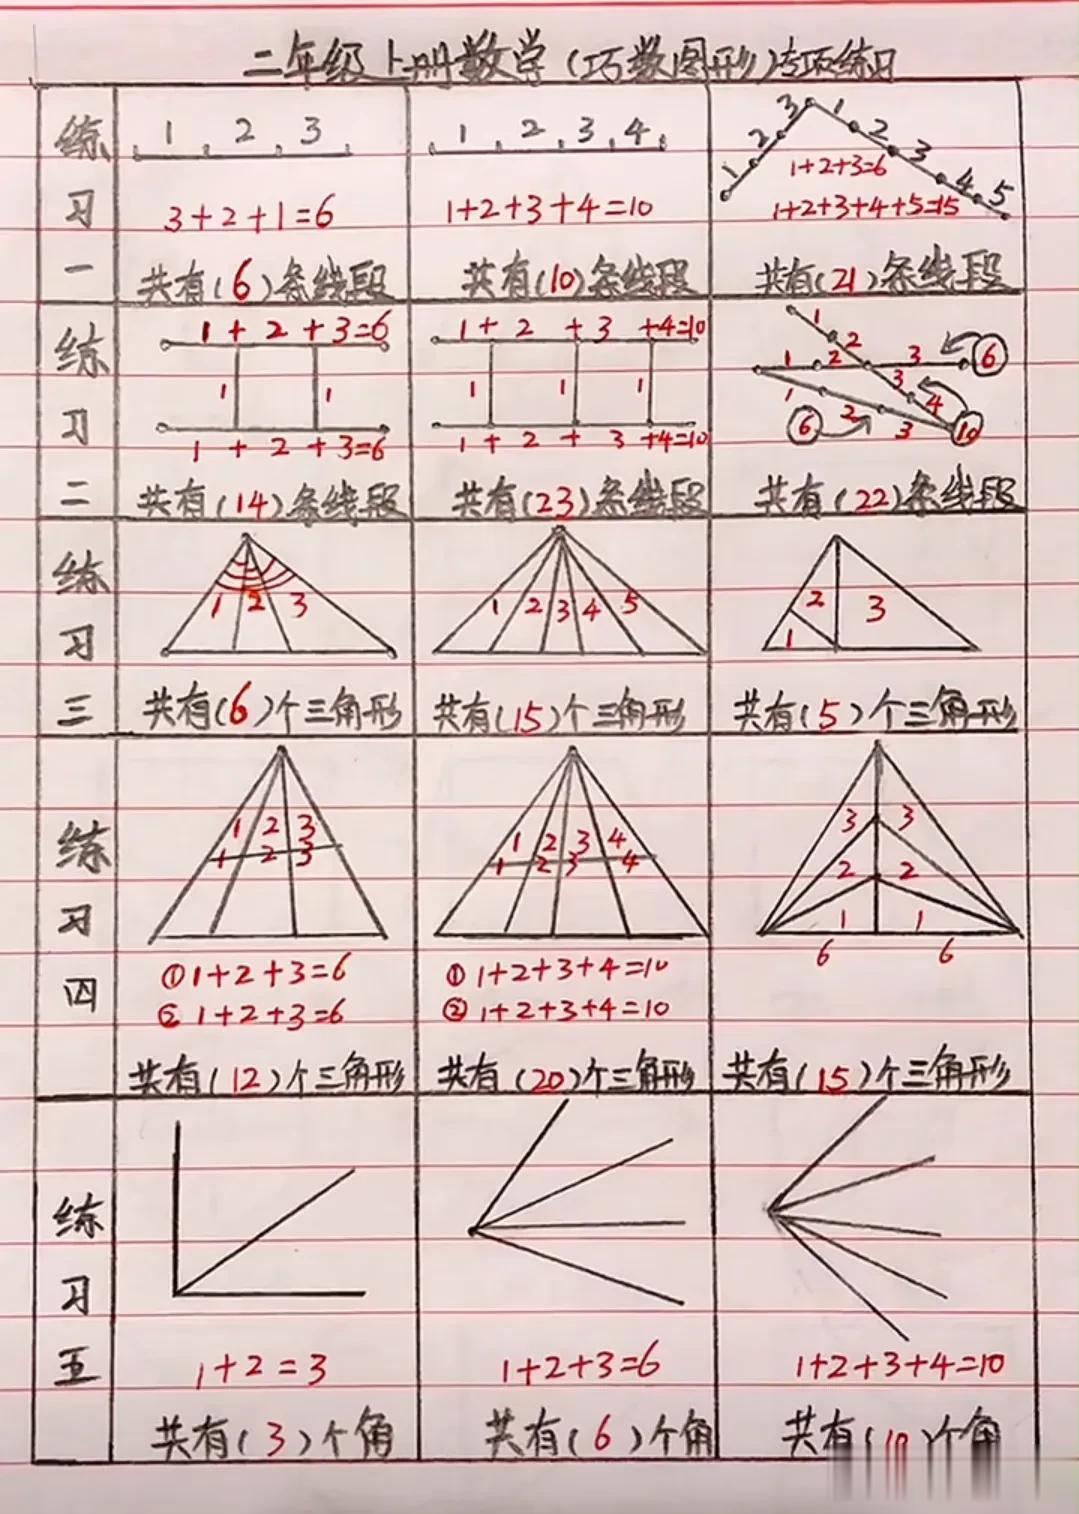 二年级上册数学(巧数图形)专项练习
练习一
1 2 3
3+2+1=6
共有(6)条线段
1 2 3 4
1+2+3+4=10
共有(10)条线段
1 2 3 1 2 3 4 5
1+2+3=6
1+2+3+4+5=15
共有(21)条线段
练习二
1+2+3=6
1 1
1+2+3=6
共有(14)条线段
1+2+3+4=10
1 1 1
1+2+3+4=10
共有(23)条线段
1 2
1 2 3 6
1 3 4
6 2 3 10
共有(22)条线段
练习三
1 2 3
共有(6)个三角形
1 2 3 4 5
共有(15)个三角形
2 3
1
共有(5)个三角形
练习四
1 2 3
1 2 3
①1+2+3=6
②1+2+3=6
共有(12)个三角形
1 2 3 4
1 2 3 4
①1+2+3+4=10
②1+2+3+4=10
共有(20)个三角形
3 3
2 2
1 1
6 6
共有(15)个三角形
练习五
1+2=3
共有(3)个角
1+2+3=6
共有(6)个角
1+2+3+4=10
共有(10)个角